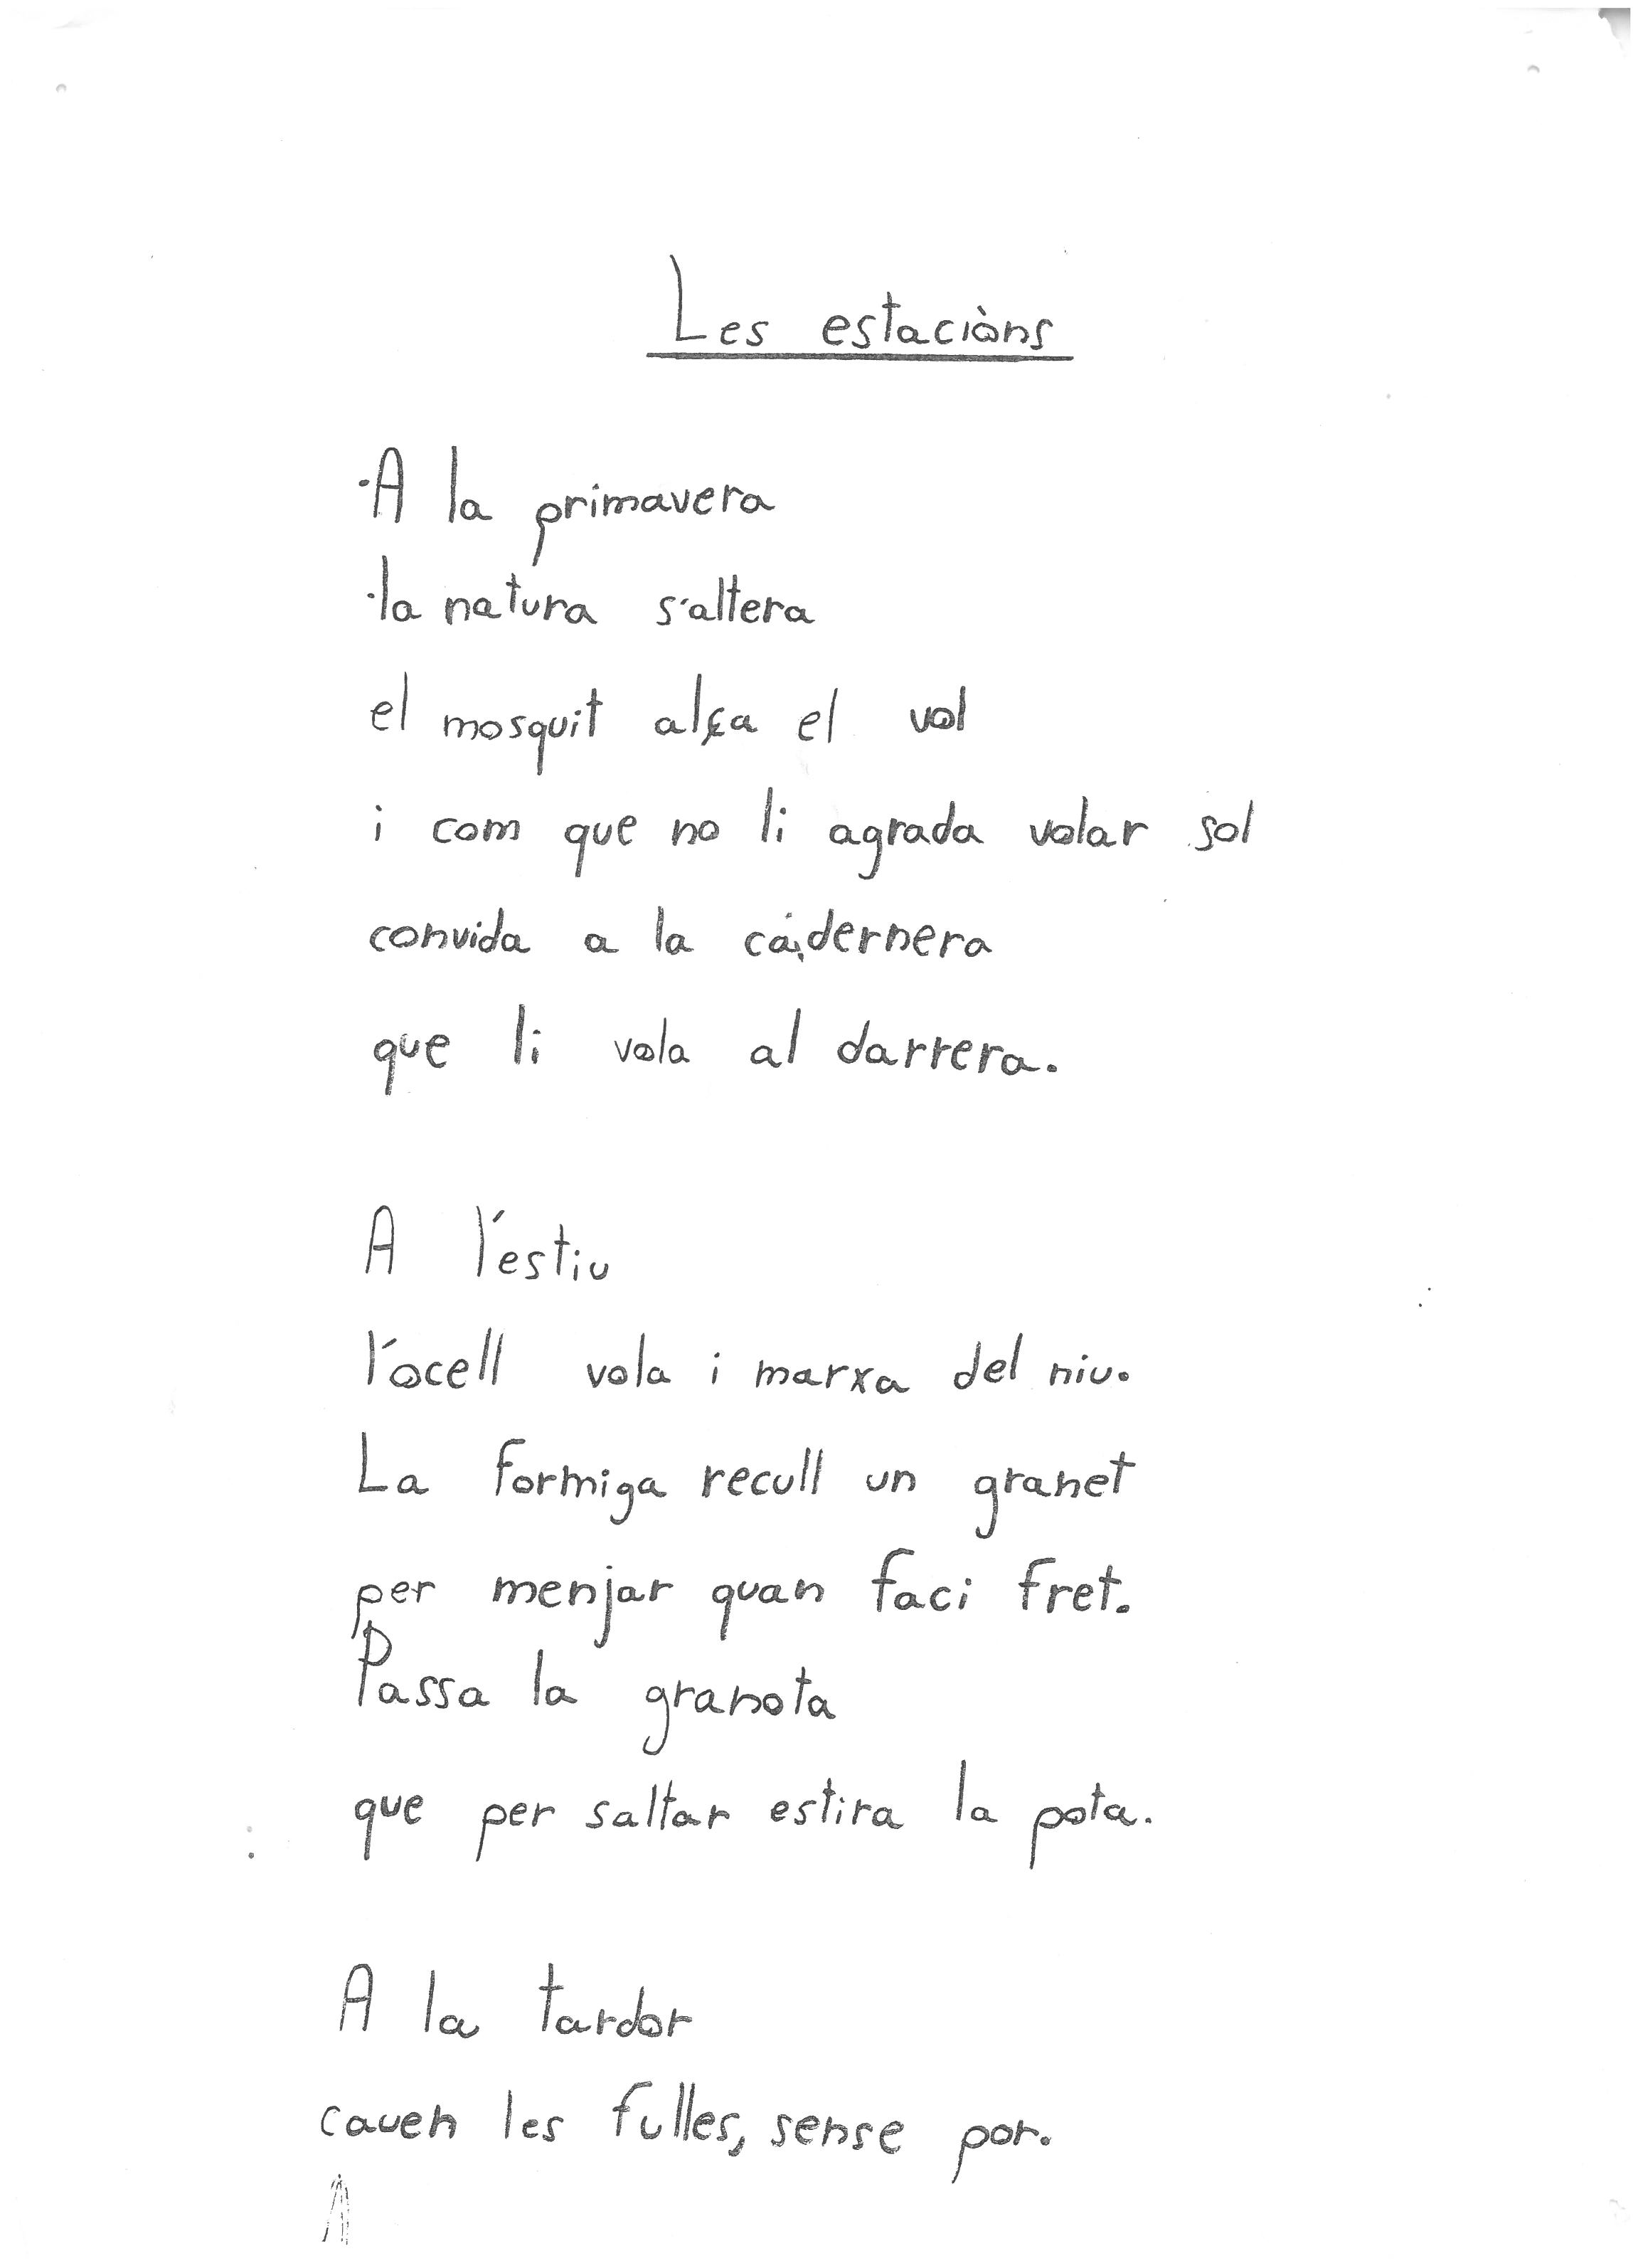 Les estaciòns
·A la primavera
·la natura s'altera
el mosquit alça el vol
i com que no li agrada volar sol
convida a la cadernera
que li vola al darrera.
A l'estiu
l'ocell vola i marxa del niu.
La formiga recull un granet
per menjar quan faci fret.
Passa la granota
que per saltar estira la pota.
A la tardor
cauen les fulles, sense por.